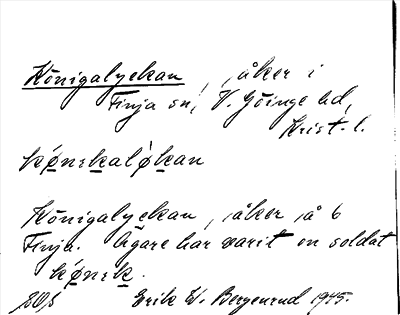 Königalyckan, åker i
Finja sn, V. Göinge hd,
Krist. l.
kǿnikalǿkan
Königalyckan, åker å 6
Finja. Ägare har varit en soldat
kǿnik.
Erik W. Bergenrud 1945.